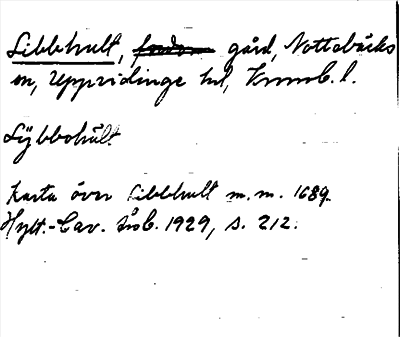 Libbhult, gård, Nottebäcks
sn, Uppvidinge hd, Kronob. l.
Lÿbbohult
Karta över Libbhult m.m. 1689.
Hylt.-Cav. årsb. 1929, s. 212.